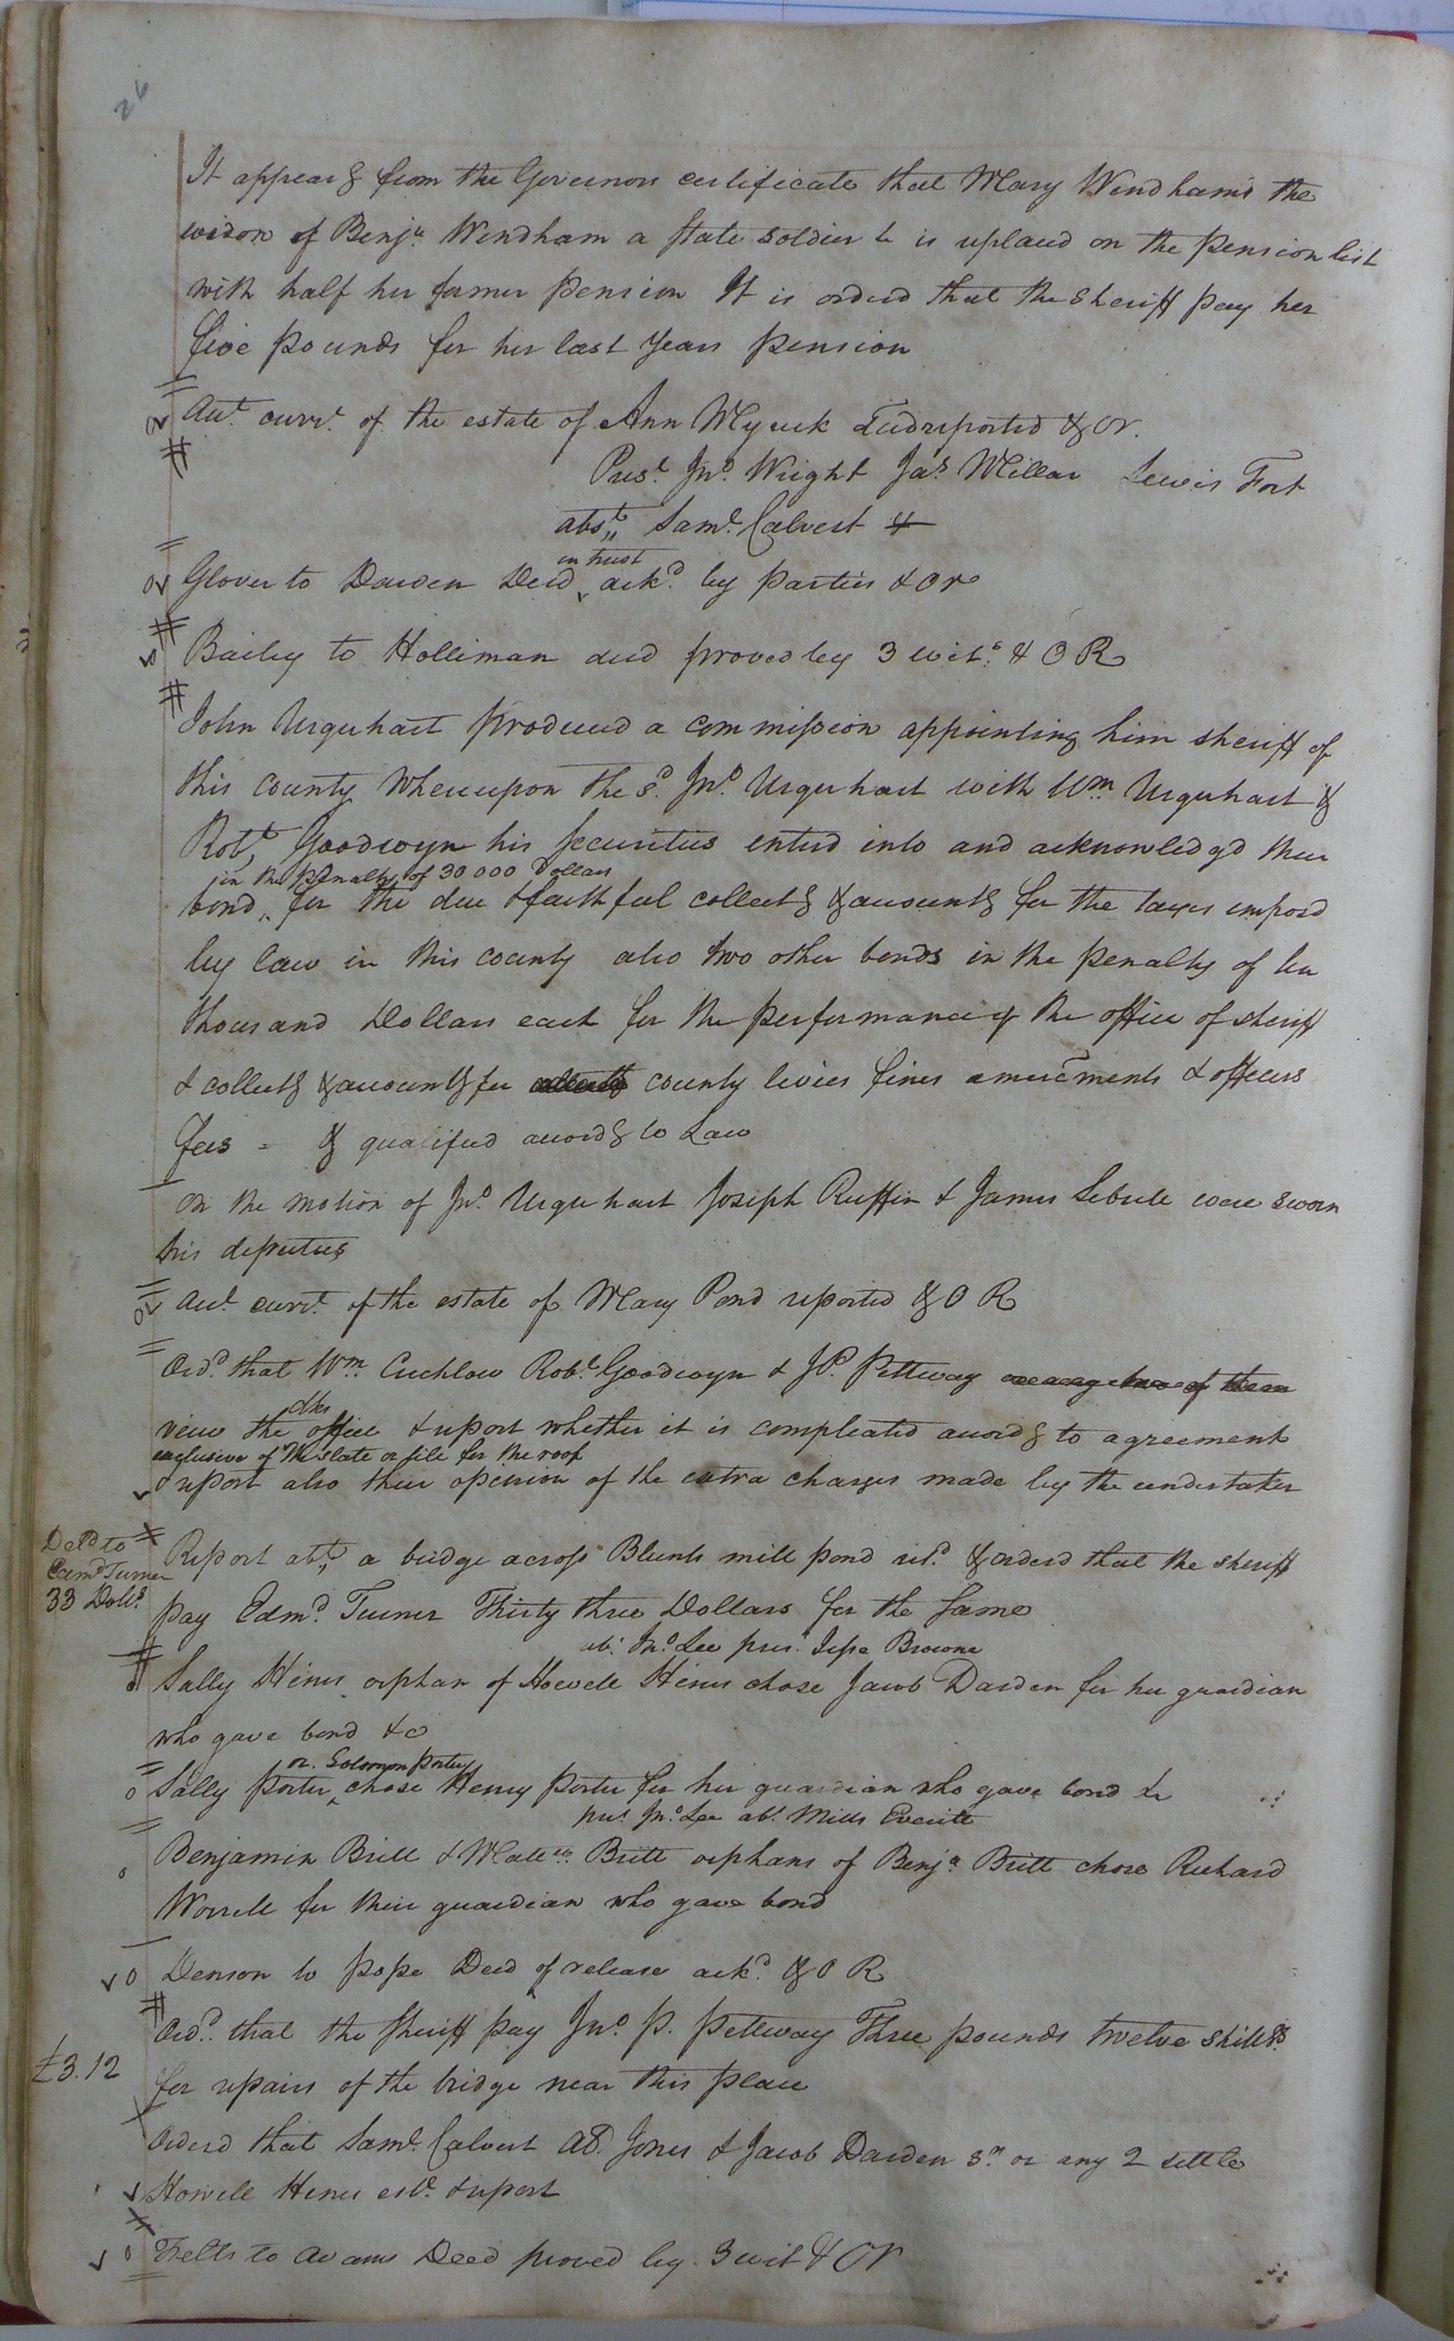 26
It appearg from the Governors certificate that Mary Windham's the
widow of Benja Windham a State soldier &c is replaced on the pension list
with half her former pension It is ordered that the Sheriff pay her
five pounds for her last years pension
Or Acct currt of the estate of Ann Myrick reported & Or.
Prest Jno Wright Jas Millar Lewis Fort
abst Saml Calvert
in trust
Or Glover to Darden Deed ^ ackd by parties & Or
Bailey to Holliman deed proved by 3 wits & O R
John Urquhart produced a commission appointing him sheriff of
this county Whereupon the sd Jno Urquhart with Wm Urquhart &
Robt Goodwyn his Securities enterd into and acknowledgd their
in the penalty of 30 000 Dollars
bond ^ for the due & faithful collectg & accountg for the taxes imposd
by law in this county also two other bonds in the penalty of ten
thousand Dollars each for the performance of the office of sheriff
& collectg & accountg for county levies fines amercements & officers
fees = & qualified accordg to Law
On the motion of Jno Urquhart Joseph Ruffin & James Sebrell were sworn
his deputies
Or Acct currt of the estate of Mary Pond reported & O R
Ordd that Wm Crichlow Robt Goodwyn & J P. Pettway or any two of them
clks
view the office & report whether it is compleated accordg to agreement
exclusive of the slate or tile for the roof
& report also their opinion of the extra charges made by the undertaker
Deld to
Edmd Turner
33 Dolls
Report abt a bridge across Blunts mill pond retd & orderd that the sheriff
pay Edmd Turner Thirty three Dollars for the same
ab. Jno Lee pres. Jesse Browne
Sally Hines orphan of Howell Hines chose Jacob Darden for her guardian
who gave bond &c
or. Solomon porter
o Sally porter ^ chose Henry porter for her guardian who gave bond &c
prest Jno Lee abt Mills Everitt
o Benjamin Britt & Matt Britt orphans of Benja Britt chose Richard
Worrell for their guardian who gave bond
o Denson to pope Deed of release ackd & O R
Ordd that the Sheriff pay Jno P. Pettway Three pounds twelve shills
£3.12
for repairs of the bridge near this place
Orderd that Saml Calvert AB. Jones & Jacob Darden Sr or any 2 settle
Howell Hines estt & report
o Felts to Adams Deed proved by 3 wit & Or